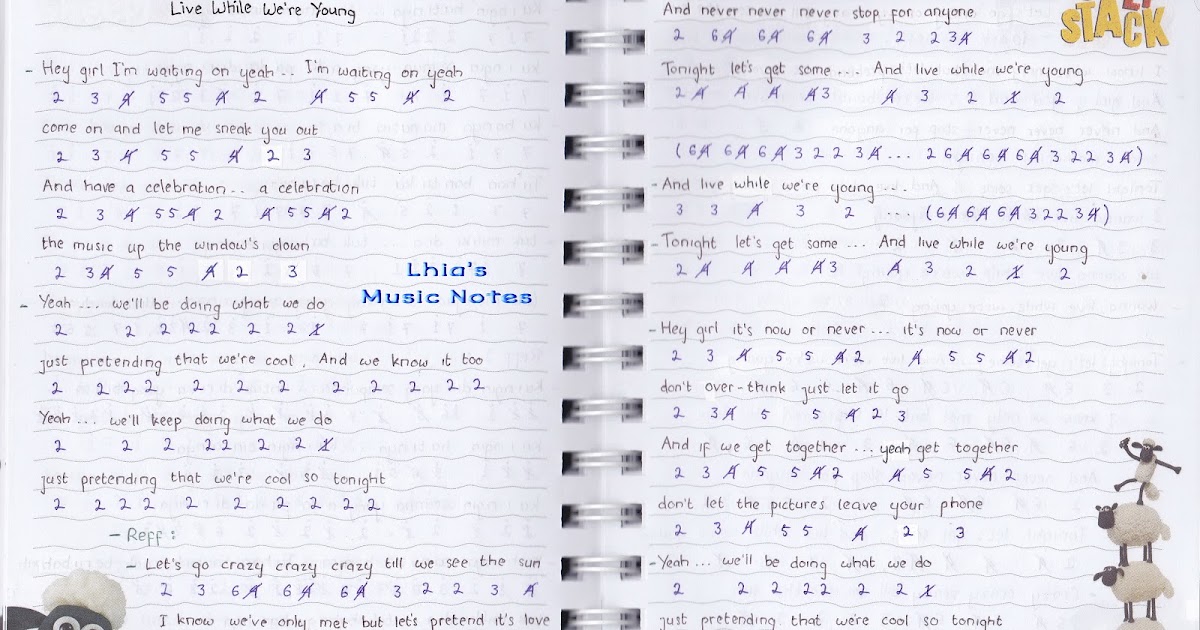 Live While We're Young
- Hey girl I'm waiting on yeah... I'm waiting on yeah
2 3 4̸ 5 5 4̸ 2 4̸ 5 5 4̸ 2
come on and let me sneak you out
2 3 4̸ 5 5 4̸ 2 3
And have a celebration.. a celebration
2 3 4̸ 5 5 4̸ 2 4̸ 5 5 4̸ 2
the music up the window's down
2 3 4̸ 5 5 4̸ 2 3
Lhia's
Music Notes
- Yeah ... we'll be doing what we do
2 2 2 2 2 2 2 1̸
just pretending that we're cool . And we know it too
2 2 2 2 2 2 2 2 2 2 2
Yeah ... we'll keep doing what we do
2 2 2 2 2 2 2 1̸
just pretending that we're cool so tonight
2 2 2 2 2 2 2 2 2 2
- Reff :
- Let's go crazy crazy crazy till we see the sun
2 3 6 4̸ 6 4̸ 6 4̸ 3 2 2 3 4̸
I know we've only met but let's pretend it's love
STACK
And never never never stop for anyone
2 6 4̸ 6 4̸ 6 4̸ 3 2 2 3 4̸
Tonight let's get some ... And live while we're young
2 4̸ 4̸ 4̸ 4̸ 3 4̸ 3 2 1̸ 2
(6 4̸ 6 4̸ 6 4̸ 3 2 2 3 4̸ ... 2 6 4̸ 6 4̸ 6 4̸ 3 2 2 3 4̸)
- And live while we're young ....
3 3 4̸ 3 2 ... (6 4̸ 6 4̸ 6 4̸ 3 2 2 3 4̸)
- Tonight let's get some ... And live while we're young
2 4̸ 4̸ 4̸ 4̸ 3 4̸ 3 2 1̸ 2
- Hey girl it's now or never ... it's now or never
2 3 4̸ 5 5 4̸ 2 4̸ 5 5 4̸ 2
don't over-think just let it go
2 3 4̸ 5 5 4̸ 2 3
And if we get together ... yeah get together
2 3 4̸ 5 5 4̸ 2 4̸ 5 5 4̸ 2
don't let the pictures leave your phone
2 3 4̸ 5 5 4̸ 2 3
- Yeah ... we'll be doing what we do
2 2 2 2 2 2 2 1̸
just pretending that we're cool so tonight